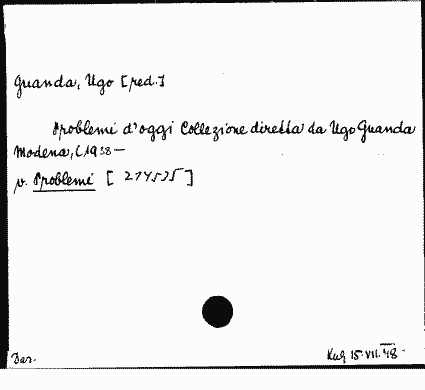 Guanda, Ugo [red.]
Problemi d'oggi Collezione diretta da Ugo Guanda
Modena, (1938—
v. Problemi [ 274535 ]
Bar. Kug 15.VII.48.